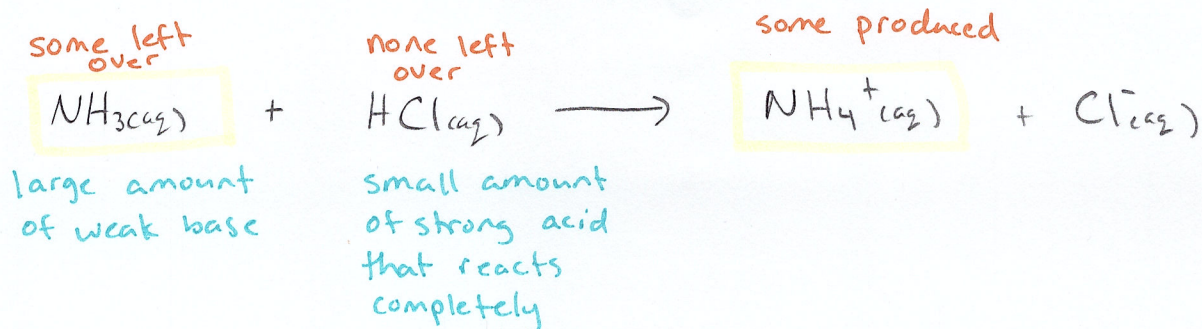 some left over
none left over
some produced
NH₃(aq) + HCl(aq) ⟶ NH₄⁺(aq) + Cl⁻(aq)
large amount
of weak base
small amount
of strong acid
that reacts
completely